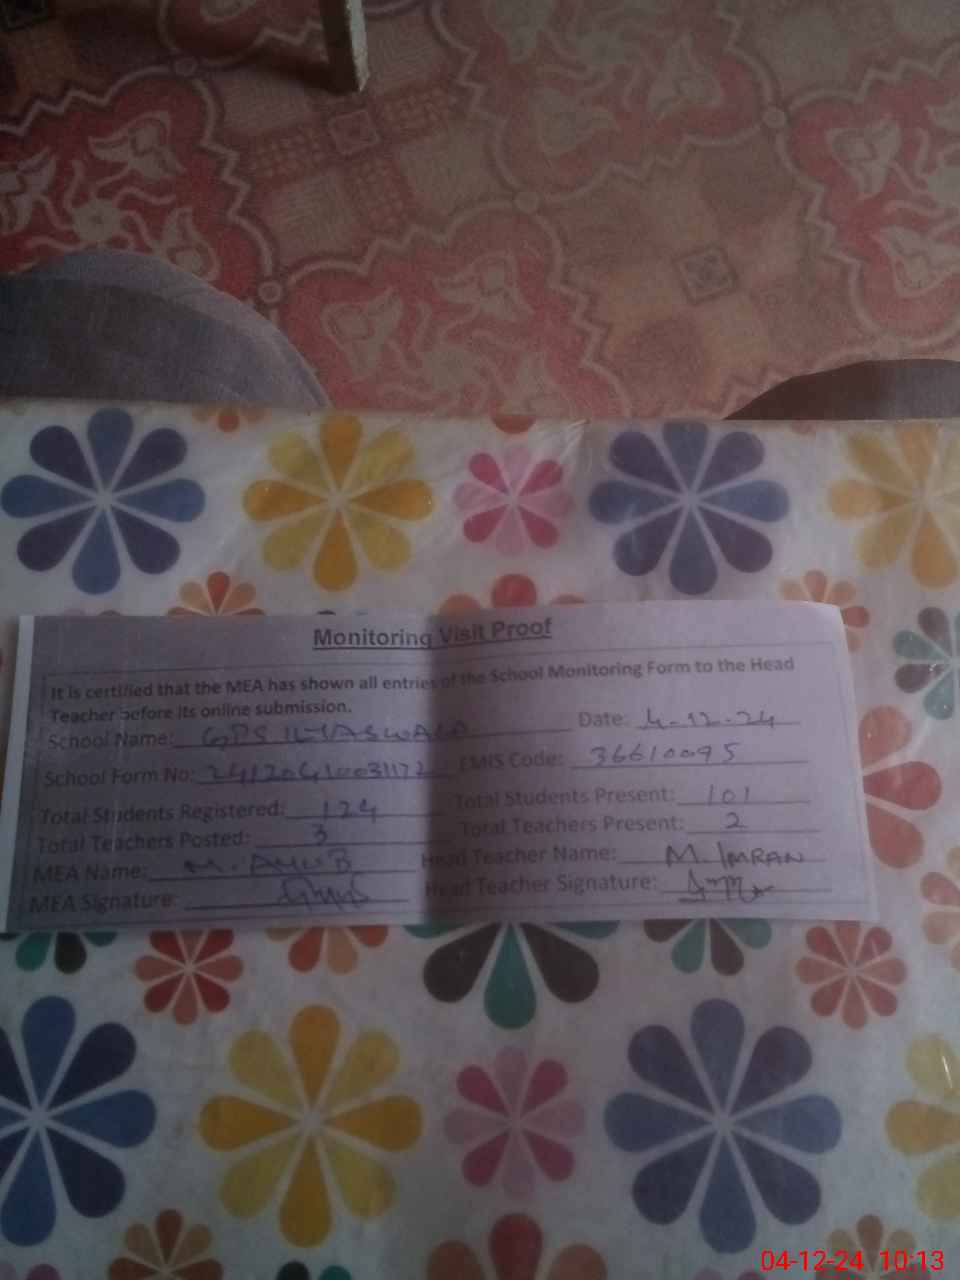 Monitoring Visit Proof
It is certified that the MEA has shown all entries of the School Monitoring Form to the Head
Teacher before its online submission.
School Name: GPS Date: 4-12-24
School Form No: EMIS Code: 36610095
Total Students Registered: 124 Total Students Present: 101
Total Teachers Posted: 3 Total Teachers Present: 2
MEA Name: M. AYUB Head Teacher Name: M. IMRAN
MEA Signature: Head Teacher Signature:
04-12-24 10:13